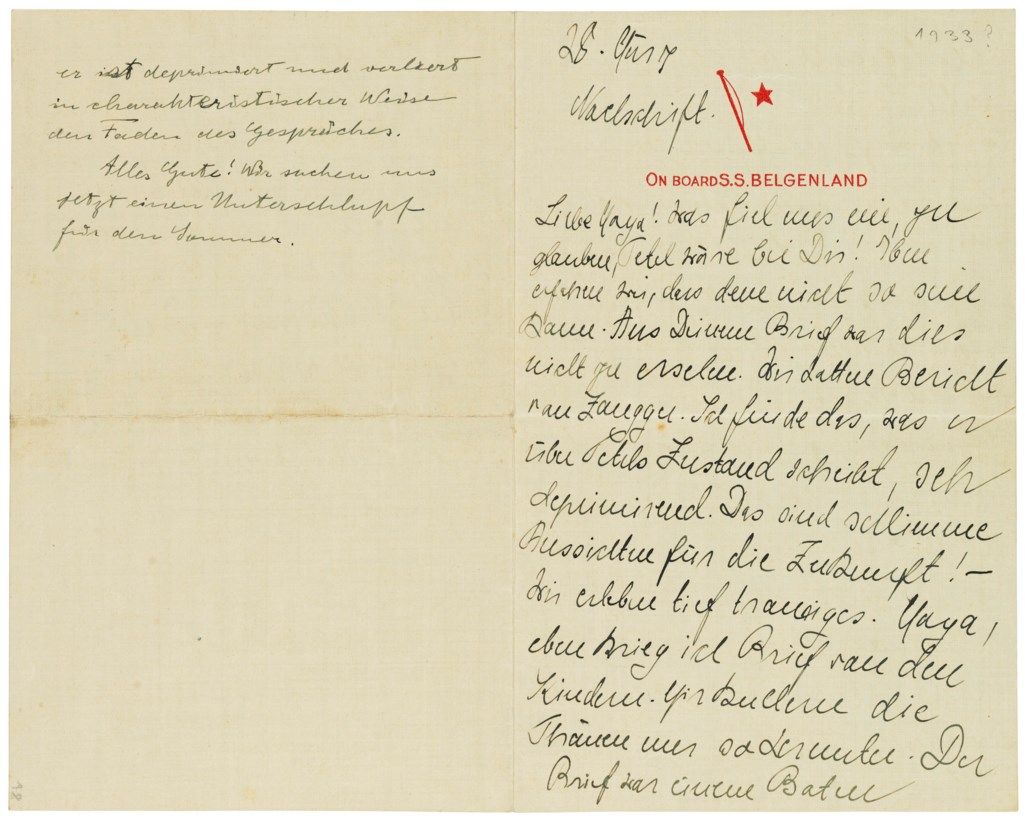 er ist deprimiert und verliert
in charakteristischer Weise
den Faden des Gespräches.
Alles Gute! Wir suchen uns
jetzt einen Unterschlupf
für den Sommer.
1933?
28. März
Nachschrift.
ON BOARD S.S. BELGENLAND
Liebe Maya! Was fiel uns ein, zu
glauben, Tetel wäre bei Dir! Eben
erfahren wir, dass dem nicht so sein
kann. Aus Deinem Brief war dies
nicht zu ersehen. Wir hatten Bericht
von Zangger. Ich finde das, was er
über Tetels Zustand schreibt, sehr
deprimirend. Das sind schlimme
Aussichten für die Zukunft! –
Wir erleben tief trauriges. Maya,
eben krieg ich Brief von den
Kindern. Mir kullern die
Thränen nur so herunter. Der
Brief war einem Baten
18